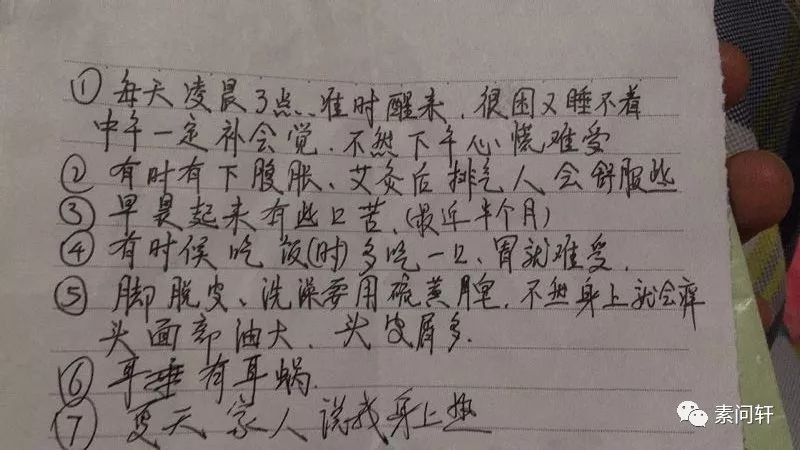 ① 每天凌晨3点、准时醒来，很困又睡不着
中午一定补会觉，不然下午心慌难受
② 有时有下腹胀、艾灸后排气人会舒服些
③ 早晨起来有些口苦，(最近半个月)
④ 有时候吃饭(时)多吃一口、胃就难受，
⑤ 脚脱皮、洗澡要用硫黄皂，不然身上就会痒
头面部油大、头皮屑多。
⑥ 耳垂有耳蜗。
⑦ 夏天家人说我身上热
素问轩